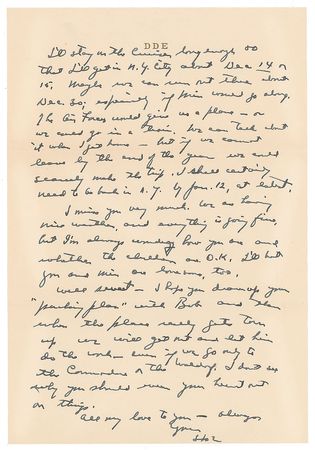 DDE
I'll stay on the Cruiser long enough so
that I'll get in N.Y. City about Dec 14 or
15. Maybe we can run out there about
Dec. 30; especially if Min would go along.
The Air Forces would give us a plane — or
we could go in a train. We can talk about
it when I get home — but if we cannot
leave by the end of the year we could
scarcely make the trip. I should certainly
need to be back in N.Y. by Jan. 12, at latest.
I miss you very much. We are having
nice weather, and everything is going fine,
but I'm always wondering how you are and
whether the children are O.K. I'll bet
you and Min are lonesome, too.
Well sweet — I hope you draw up your
"packing plan" with Bob and then
when the place really gets torn
up we will get out and let him
do the work — even if we go only to
the Commodore or the Waldorf. I don't see
why you should wear your heart out
on things.
All my love to you — always
Your